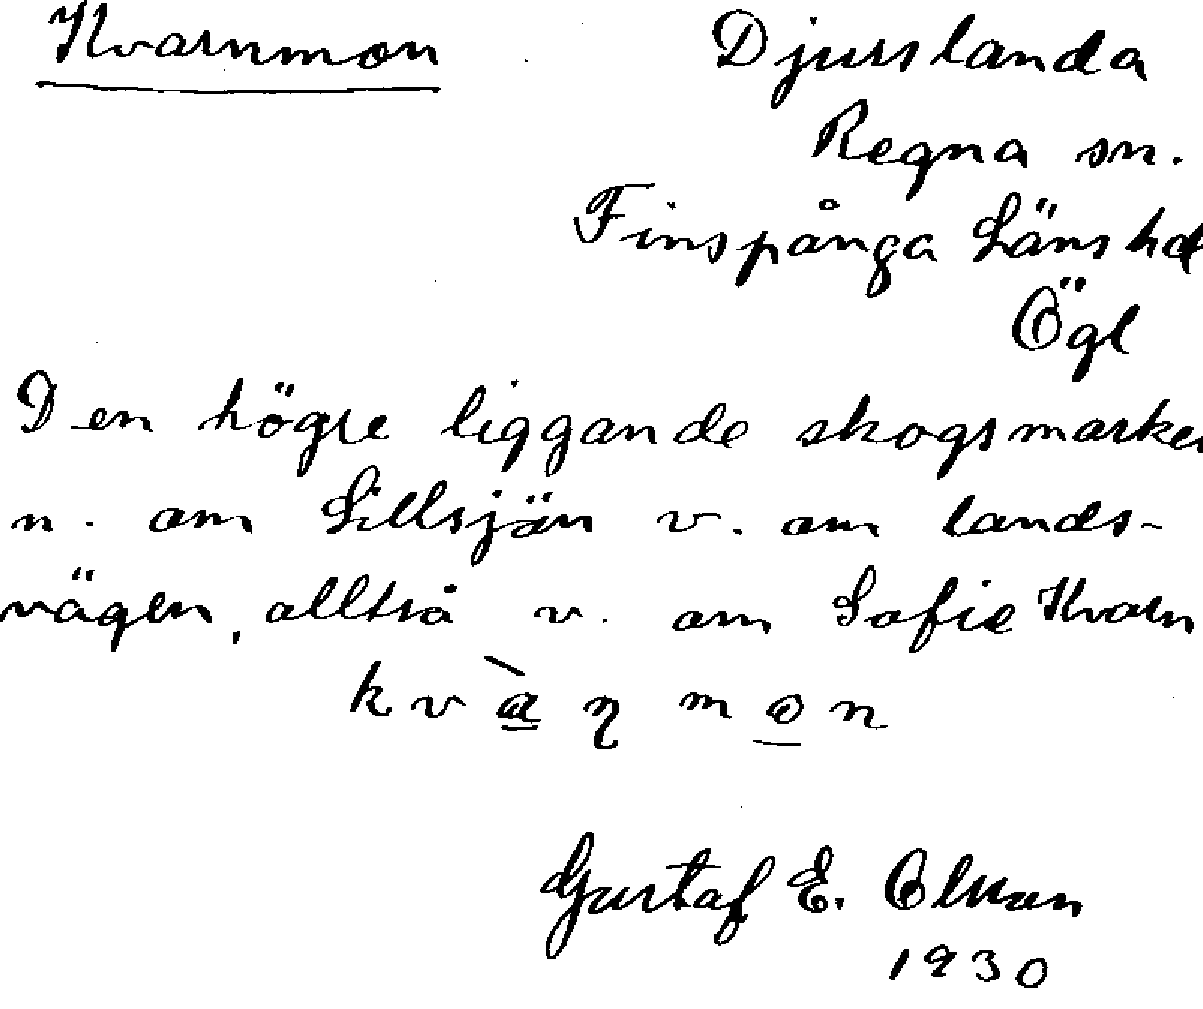 Kvarnmon
Djurslanda
Regna sn.
Finspånga Läns hd
Ögl
Den högre liggande skogsmarken
n. om Lillsjön v. om lands-
vägen, alltså v. om Sofie Kvarn
kvàƞmon
Gustaf E. Olsson
1930